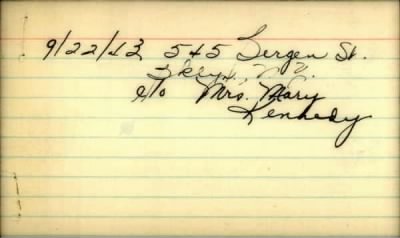 9/22/43 545 Bergen St.
Bklyn, N.Y.
c/o Mrs. Mary
Kennedy